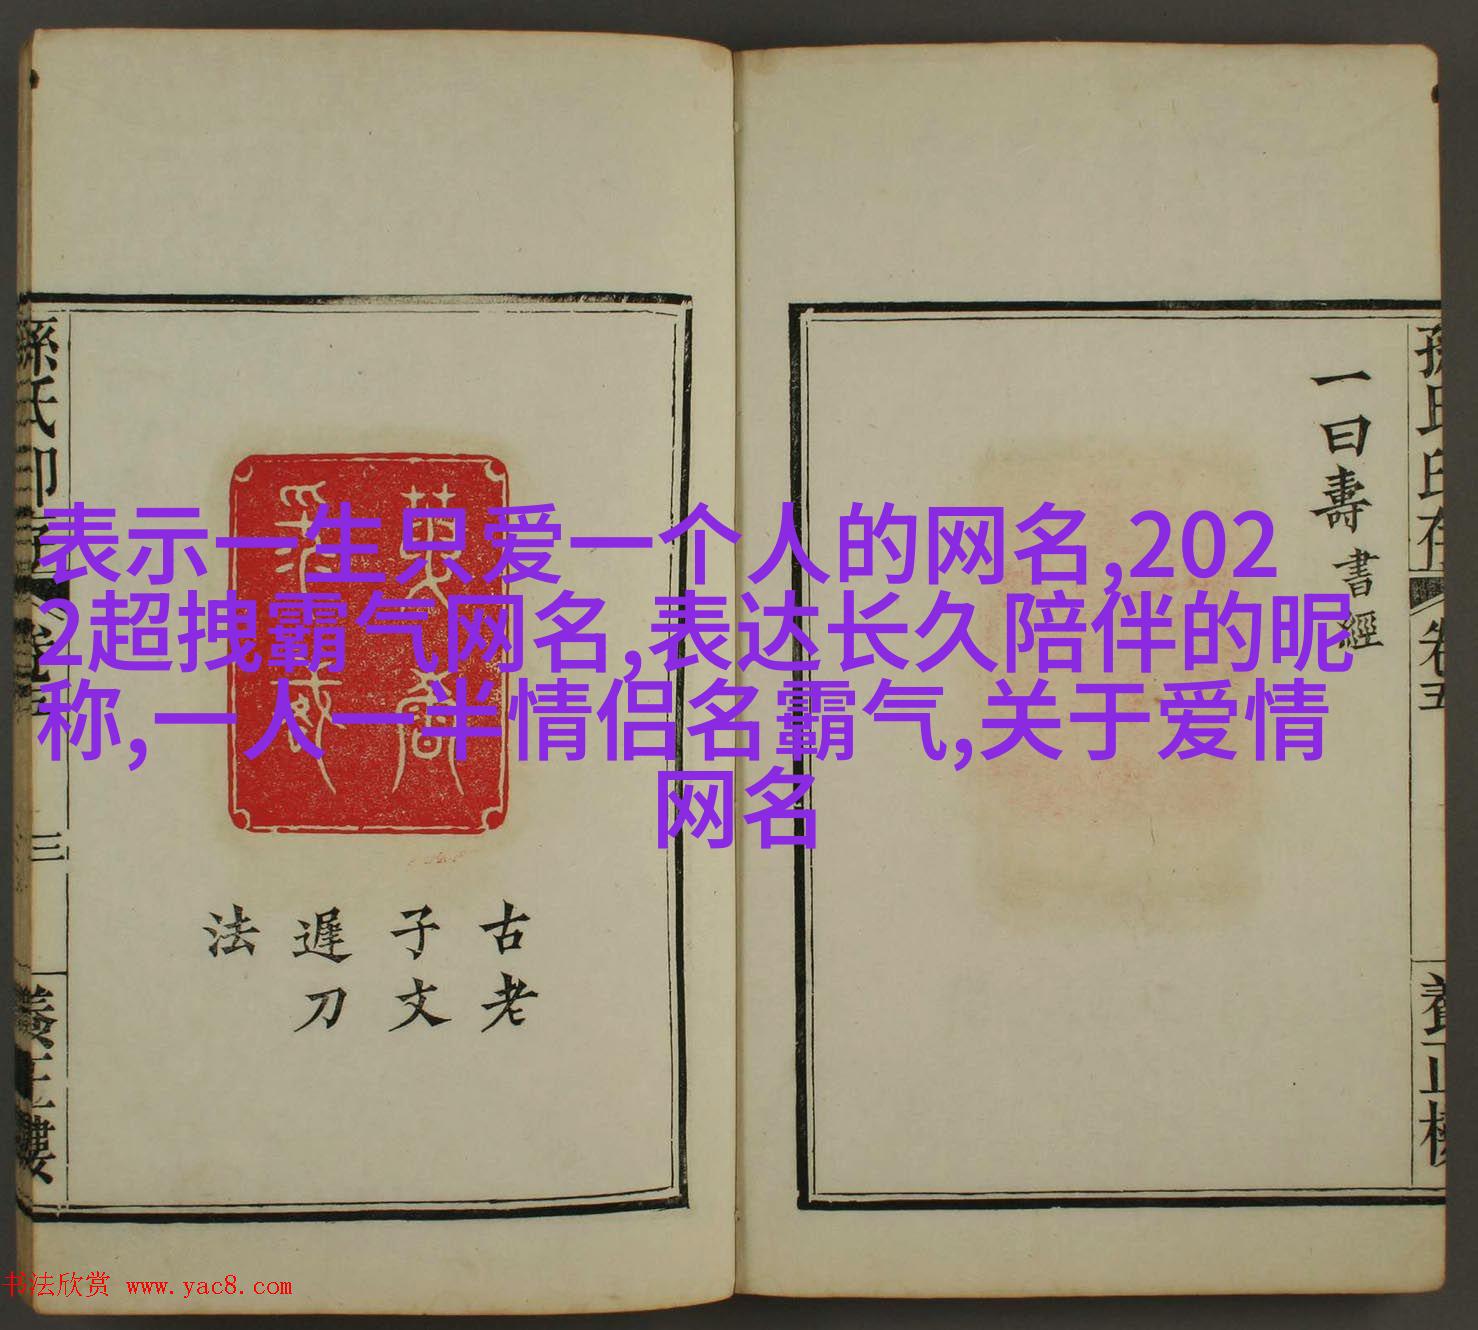 表示一生只爱一个人的网名,202
2超拽霸气网名,表达长久陪伴的昵
称,一人一半情侣名霸气,关于爱情
网名
孫氏印存
卷五
養正樓
一曰壽書經
古老
子文
遲刀
法
孫氏印
三
養正樓
书法欣赏 www.yac8.com